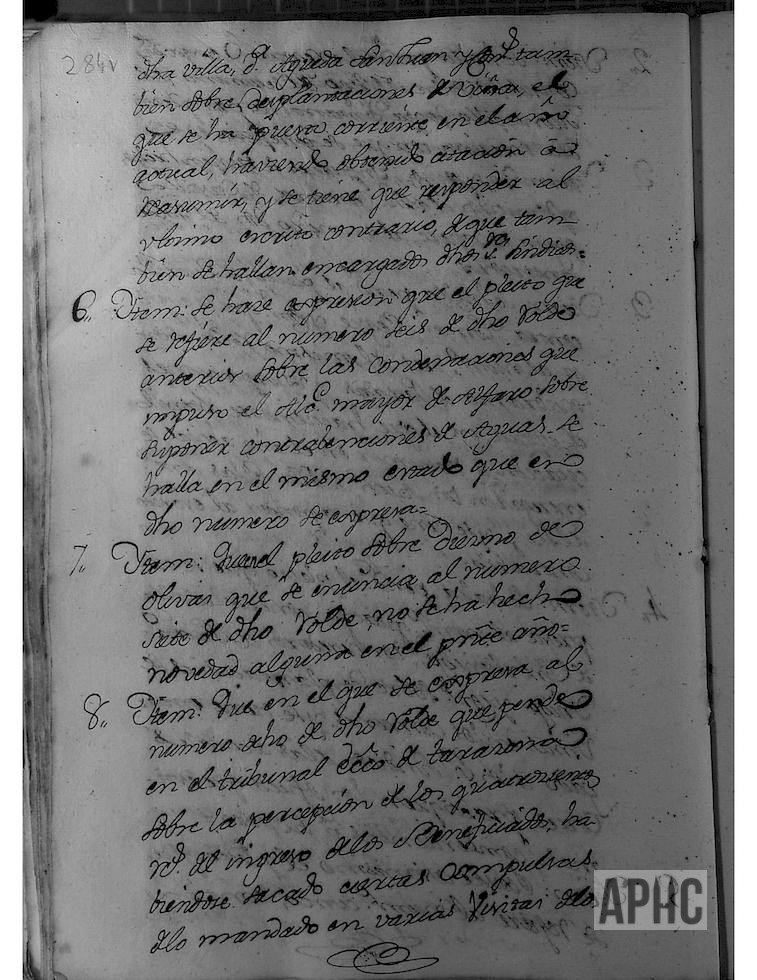 284v
dha villa, Dn. Agueda San Juan y Cons. tam-
bien sobre desplantaciones de viñas, el
que se ha puesto corriente en el año
actual, haviendo obtenido citacion a
reasumir, y se tiene que responder al
vltimo escrito contrario, de que tam-
bien se hallan encargados dhos Sindicos=
6,, Ytem: se hase expresion que el pleito que
se refiere al numero seis de dho Rolde
anterior sobre las condenaciones que
impuso el Alce. mayor de Alfaro sobre
suponer contrabenciones de Aguas, se
halla en el mismo estado que en
dho numero se expresa=
7,, Ytem: Que el pleito sobre Diezmo de
olivas que se enuncia al numero
siete de dho Rolde, no se ha hecho
novedad alguna en el prñte año=
8,, Ytem: Que en el que se expresa al
numero ocho de dho Rolde que pende
en el tribunal ecco. de tarazona
sobre la percepcion de los quatrocientos
rs. del ingreso de los Beneficiados, ha-
biendose sacado ciertas Compulsas
de lo mandado en varias Visitas de los
APHC